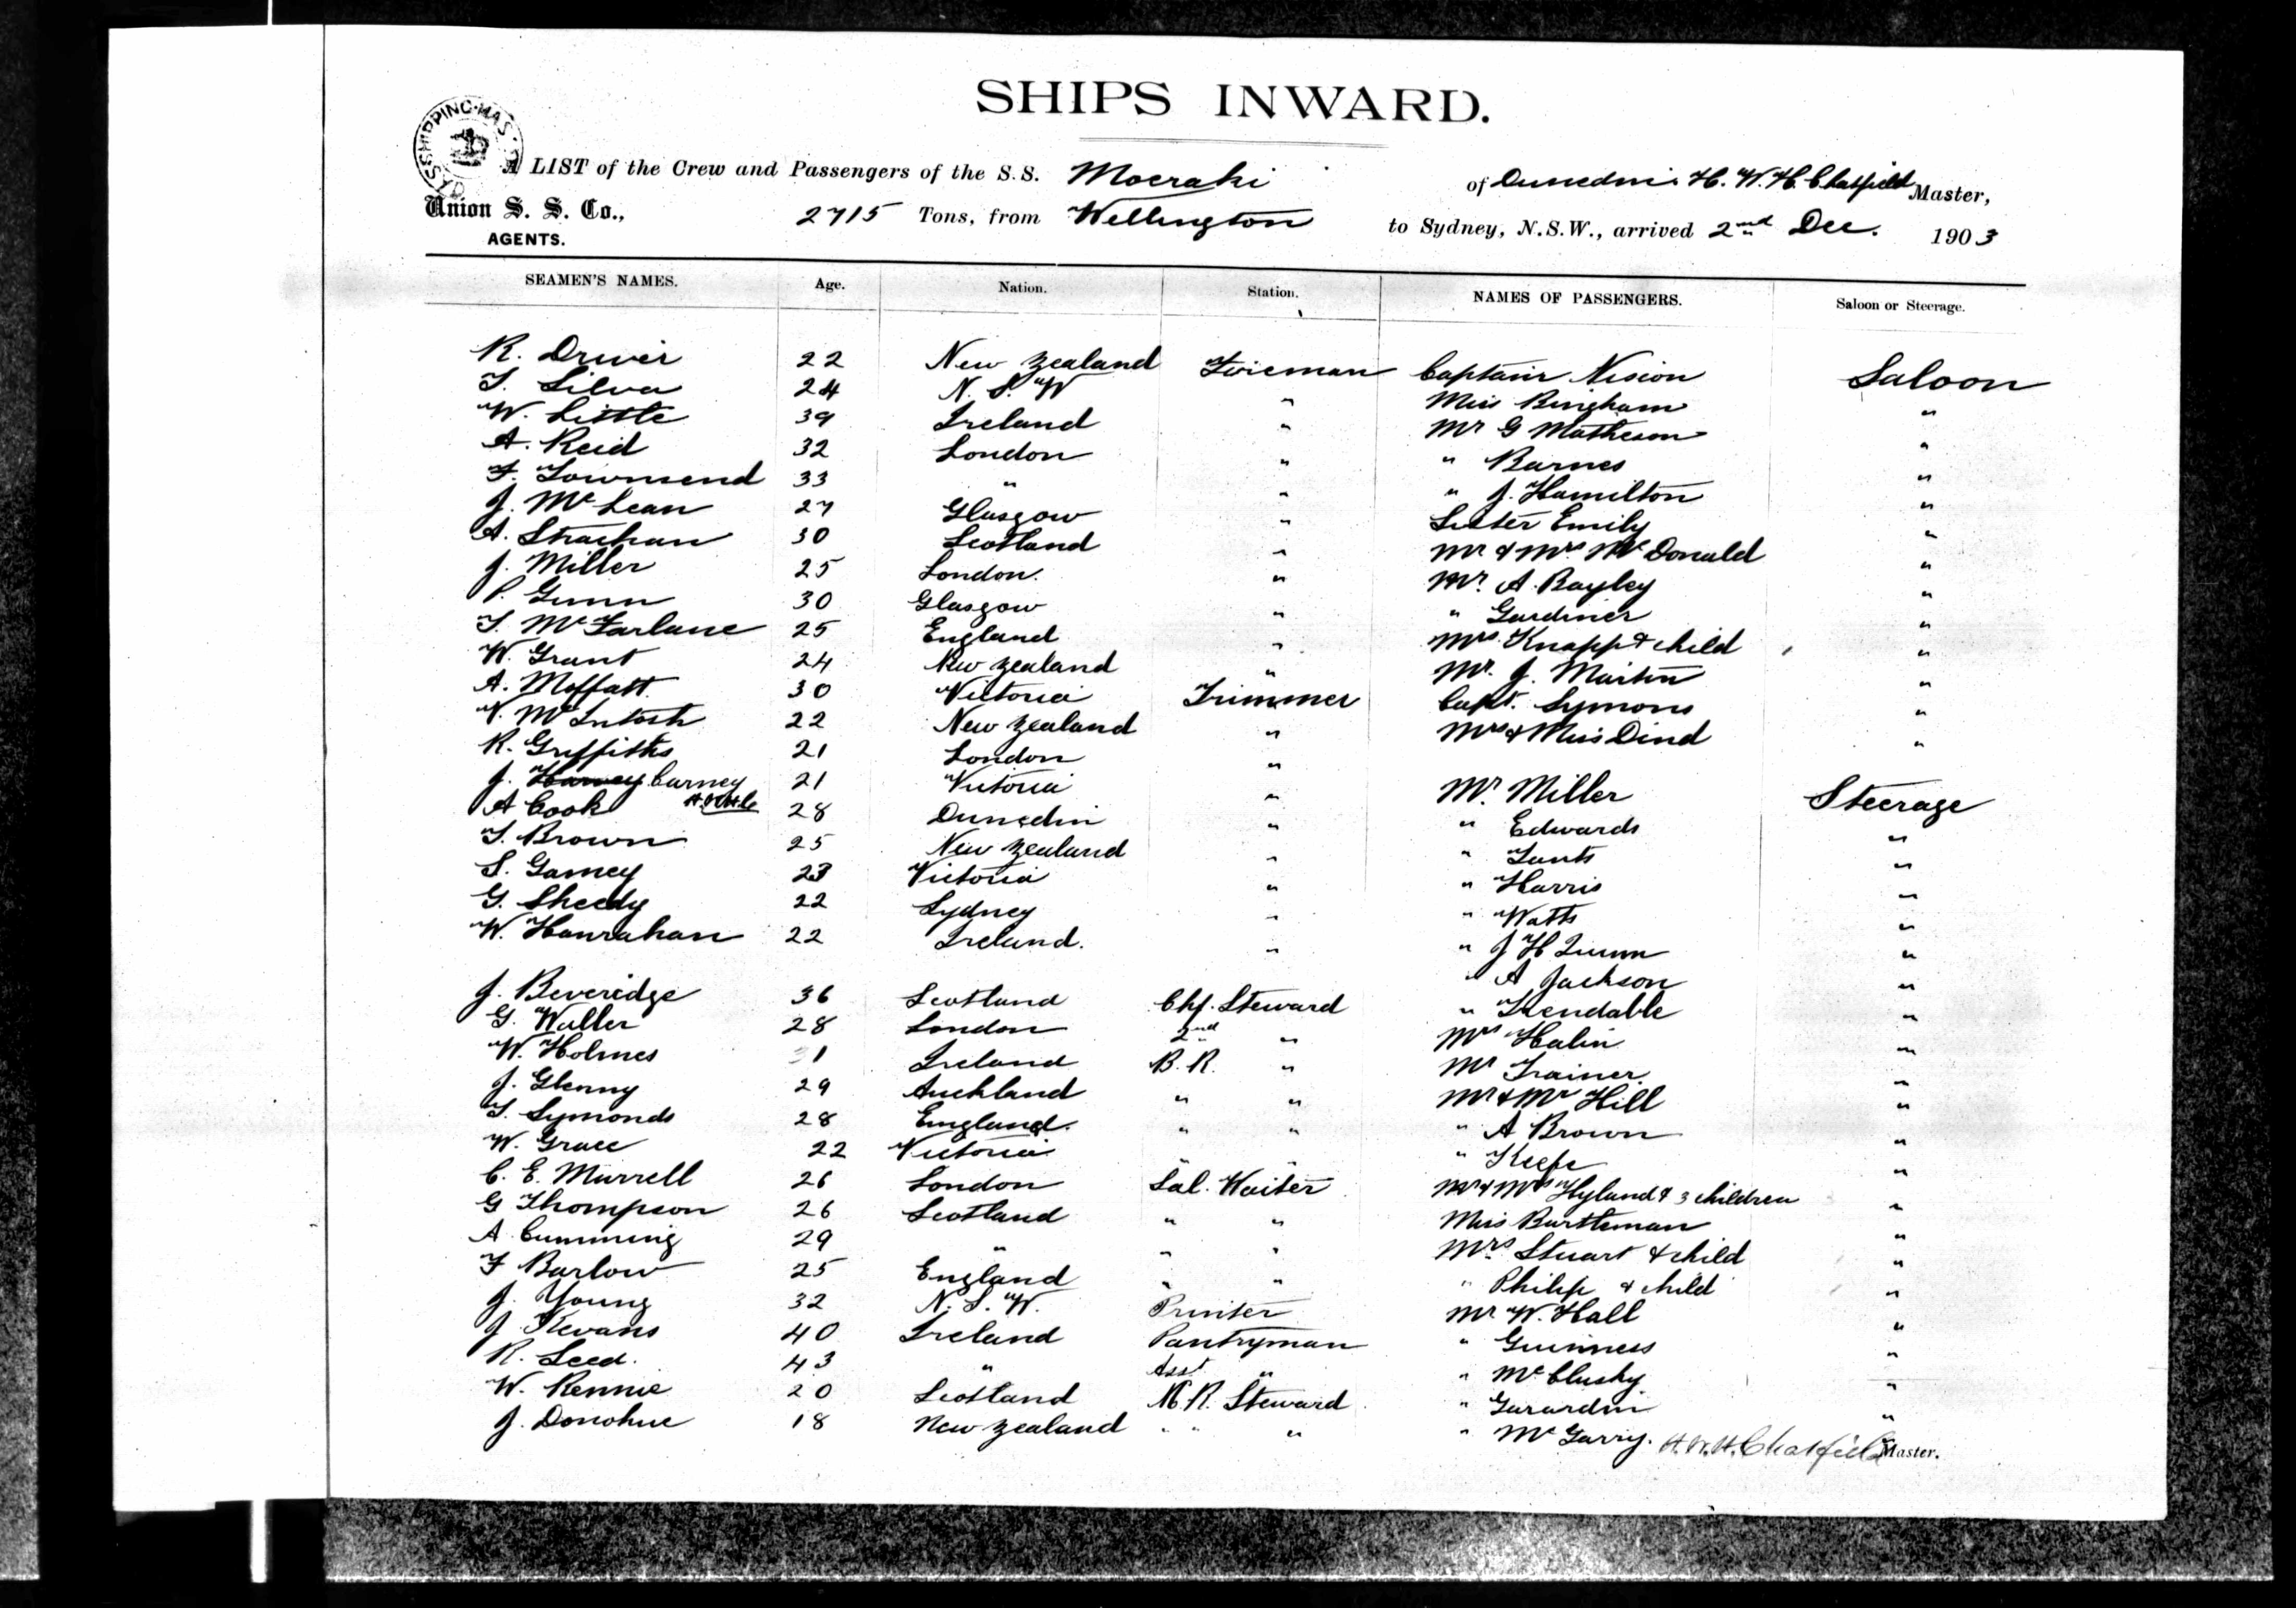 SHIPS INWARD.
SHIPPING MAS
A LIST of the Crew and Passengers of the S.S. Moeraki of Dunedin H. W. H. Chatfield Master,
Union S. S. Co., 2715 Tons, from Wellington to Sydney, N.S.W., arrived 2nd Dec. 1903
AGENTS.
SEAMEN'S NAMES. Age. Nation. Station. NAMES OF PASSENGERS. Saloon or Steerage.
R. Driver 22 New Zealand Fireman Captain Nision Saloon
T. Silva 24 N. S. W " Miss Bingham "
W. Little 39 Ireland " Mr G Matheson "
A. Reid 32 London " " Barnes "
F. Townsend 33 " " " J. Hamilton "
J. McLean 27 Glasgow " Sister Emily "
A. Strachan 30 Scotland " Mr & Mrs McDonald "
J. Miller 25 London. " Mr. A. Bayley "
P. Gunn 30 Glasgow " " Gardiner "
T. McFarlane 25 England " Mrs. Knapp & child "
W. Grant 24 New Zealand " Mr. J. Martin "
A. Moffatt 30 Victoria Trimmer Capt. Symons "
V. McIntosh 22 New Zealand " Mrs & Miss Dind "
R. Griffiths 21 London "
J. Harvey Carney 21 Victoria " Mr. Miller Steerage
A Cook 28 Dunedin " " Edwards "
T. Brown 25 New Zealand " " Tants "
S. Gamey 23 Victoria " " Harris "
G. Sheedy 22 Sydney " " Watts "
W. Hanrahan 22 Ireland. " " J H Quinn "
" A Jackson "
J. Beveridge 36 Scotland Chf. Steward " Trendable "
G. Waller 28 London 2nd " Mrs Halin "
W. Holmes 31 Ireland B. R. " Mr Trainer "
J. Glenny 29 Auckland " " Mr & Mrs Hill "
T. Symonds 28 England. " " " A Brown "
W. Grace 22 Victoria " " " Keefe "
C. E. Murrell 26 London Sal. Waiter Mr & Mrs Hyland & 3 children "
G Thompson 26 Scotland " " Miss Bartleman "
A Cumming 29 " " " Mrs Stuart & child "
F Barlow 25 England " " " Philip & child "
J. Young 32 N. S. W. Printer Mr W. Hall "
J Stevans 40 Ireland Pantryman " Guinness "
R. Leed. 43 " Asst " " McClusky "
W. Rennie 20 Scotland M. R. Steward " Garardin "
J. Donohue 18 New Zealand " " " " McGarry. "
H.W.H. Chatfield Master.